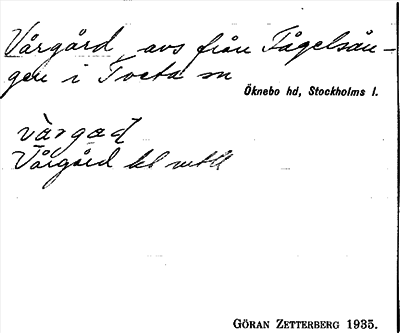 Vårgård, avs från Fågelsån-
gen i Tveta sn
Öknebo hd, Stockholms l.
vàrgad
Vårgård bl
GÖRAN ZETTERBERG 1935.